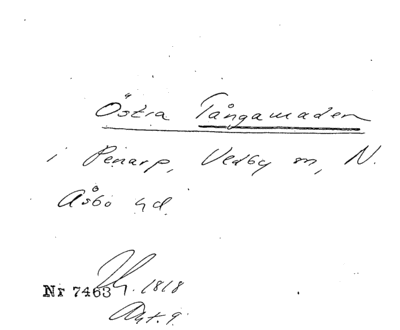 Östra Tångamaden
i Penarp, Vedby sn, N.
Åsbo hd.
Nr 7463 1818
Akt. 9.